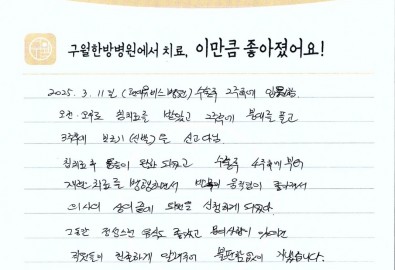 구월한방병원에서 치료, 이만큼 좋아졌어요!
2025. 3. 11일 ( 수술후 2주후에 입원함.
오전·오후로 침치료를 받았고 2주후에 붕대를 풀고
3주후에 보조기(신발)을 신고다님
침치료후 통증이 완화되었고 수술후 4주후부터
재활치료를 병행하면서 움직임이 좋아져서
의사의 퇴원을 신청하게 되었다.
그동안 정성스런 음식도 좋았고
직원들의 친절하게 불편함없이 지냈습니다.